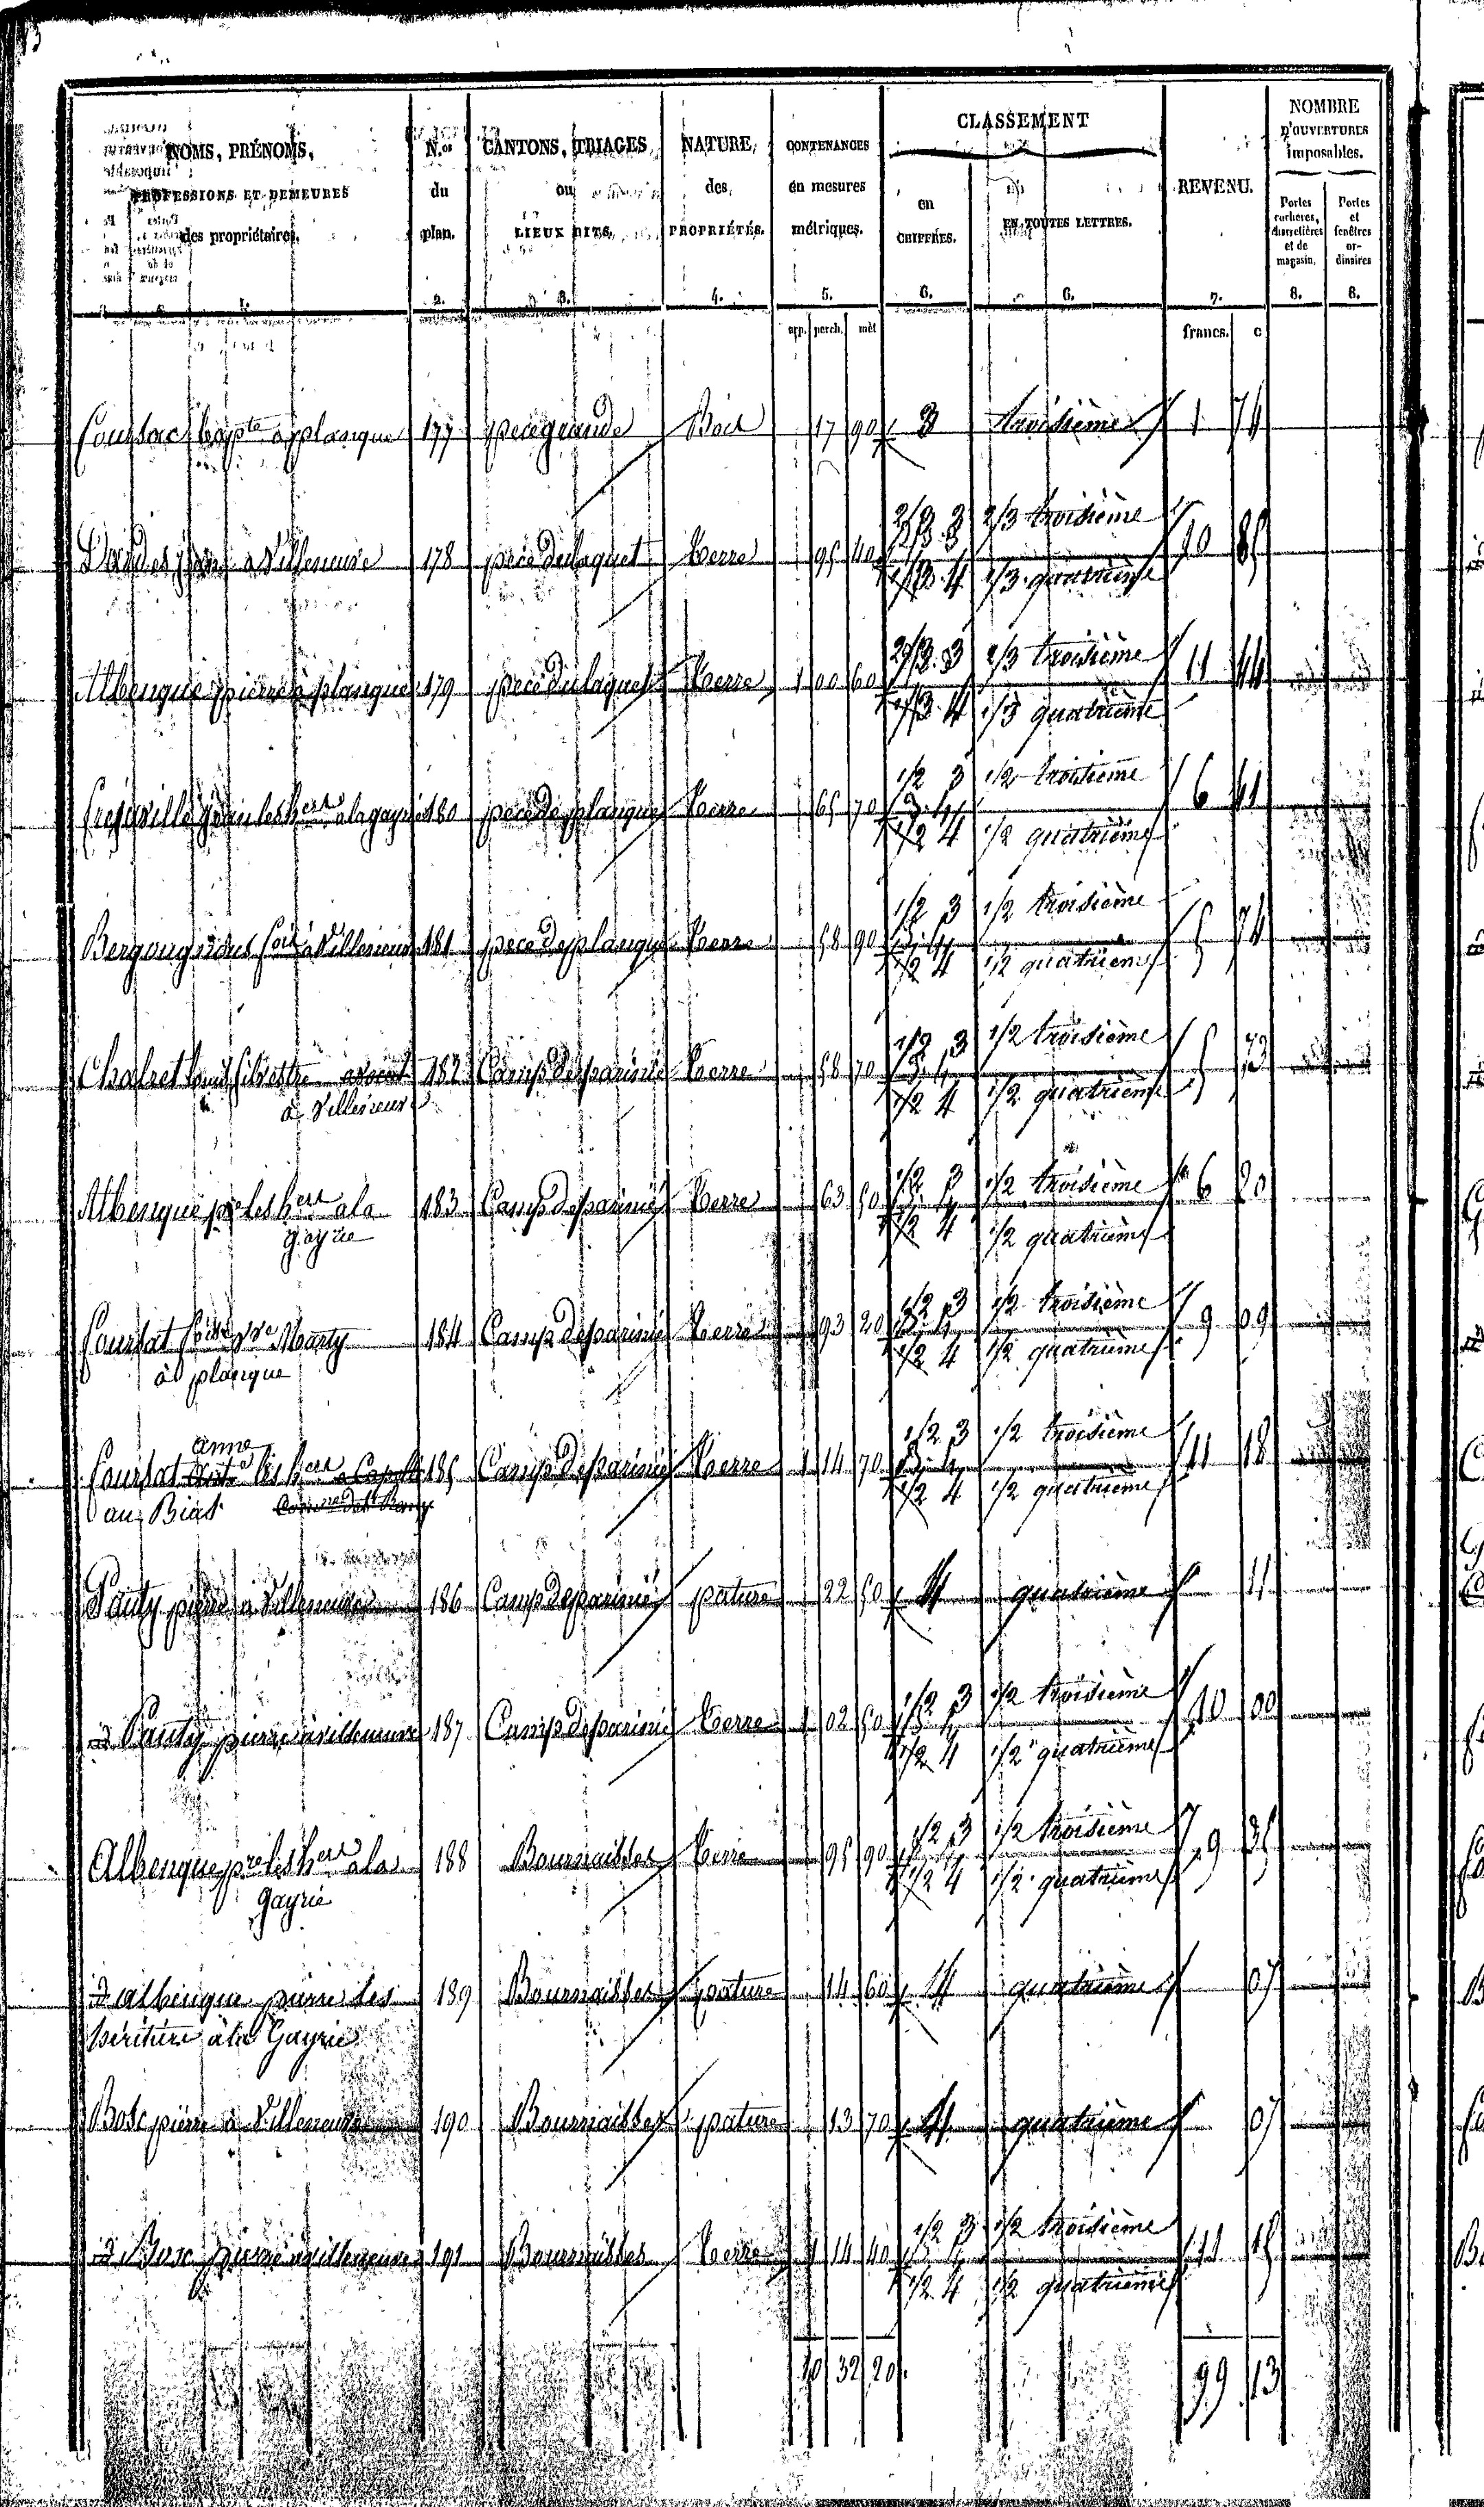 NOMS, PRÉNOMS,
PROFESSIONS ET DEMEURES
des propriétaires.
1.
N.os
du
plan.
2.
CANTONS, TRIAGES
ou
LIEUX DITS.
3.
NATURE
des
PROPRIÉTÉS.
4.
CONTENANCES
en mesures
métriques.
5.
CLASSEMENT
en
CHIFFRES.
6.
EN TOUTES LETTRES.
6.
REVENU.
7.
NOMBRE
D'OUVERTURES
imposables.
Portes
cochères,
charretières
et de
magasin.
8.
Portes
et
fenêtres
or-
dinaires
8.
arp. perch. mèt francs. c
bapte a plangue 177 pece grande Bois 17 90 3 troisième 1 74
2/3 3 2/3 troisième
à Villeneuve 178 pece du laquet terre 95 40 10 85
1/3 4 1/3 quatrième
2/3 3 2/3 troisième
Albenque pierre à plangue 179 pece du laquet terre 1 00 60 11 44
1/3 4 1/3 quatrième
1/2 3 1/2 troisième
jean les hers a la gayrie 180 pece de plangue terre 65 70 6 41
1/2 4 1/2 quatrième
1/2 3 1/2 troisième
Bergougnous à Villeneuve 181 pece de plangue terre 58 90 5 74
1/2 4 1/2 quatrième
1/2 3 1/2 troisième
Chalret louis silvestre avocat 182 Camp de parinié terre 58 70 5 73
à Villeneuve 1/2 4 1/2 quatrième
1/2 3 1/2 troisième
Albenque pre les hers a la 183 Camp de parinié terre 63 50 6 20
gayrie 1/2 4 1/2 quatrième
1/2 3 1/2 troisième
Coursat Marty 184 Camp de parinié terre 93 20 9 09
à plangue 1/2 4 1/2 quatrième
anne 1/2 3 1/2 troisième
Coursat les hers 185 Camp de parinié terre 1 14 70 11 18
au Bias 1/2 4 1/2 quatrième
Pauty pierre a Villeneuve 186 Camp de parinié pature 22 50 4 quatrième 11
1/2 3 1/2 troisième
d Pauty pierre à villeneuve 187 Camp de parinié terre 1 02 50 10 00
1/2 4 1/2 quatrième
1/2 3 1/2 troisième
Albenque pre les hers a la 188 Bournaisses terre 95 90 9 35
gayrie 1/2 4 1/2 quatrième
d albenque pierre les 189 Bournaisses pature 14 60 4 quatrième 07
héritiers à la Gayrie
Bosc pierre à Villeneuve 190 Bournaisses pature 13 70 4 quatrième 07
1/2 3 1/2 troisième
d Bosc pierre à villeneuve 191 Bournaisses terre 1 14 40 11 15
1/2 4 1/2 quatrième
10 32 20 99 13